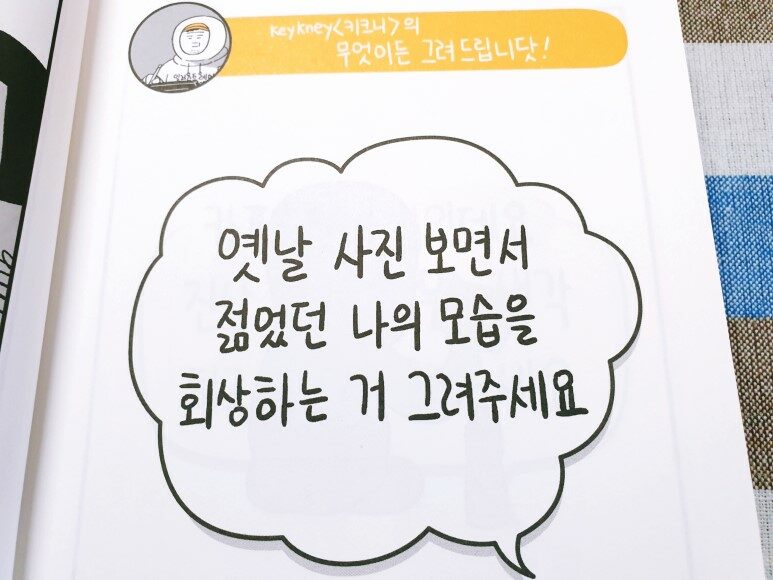 keykney<키크니>의
무엇이든 그려드립니닷!
옛날 사진 보면서
젊었던 나의 모습을
회상하는 거 그려주세요